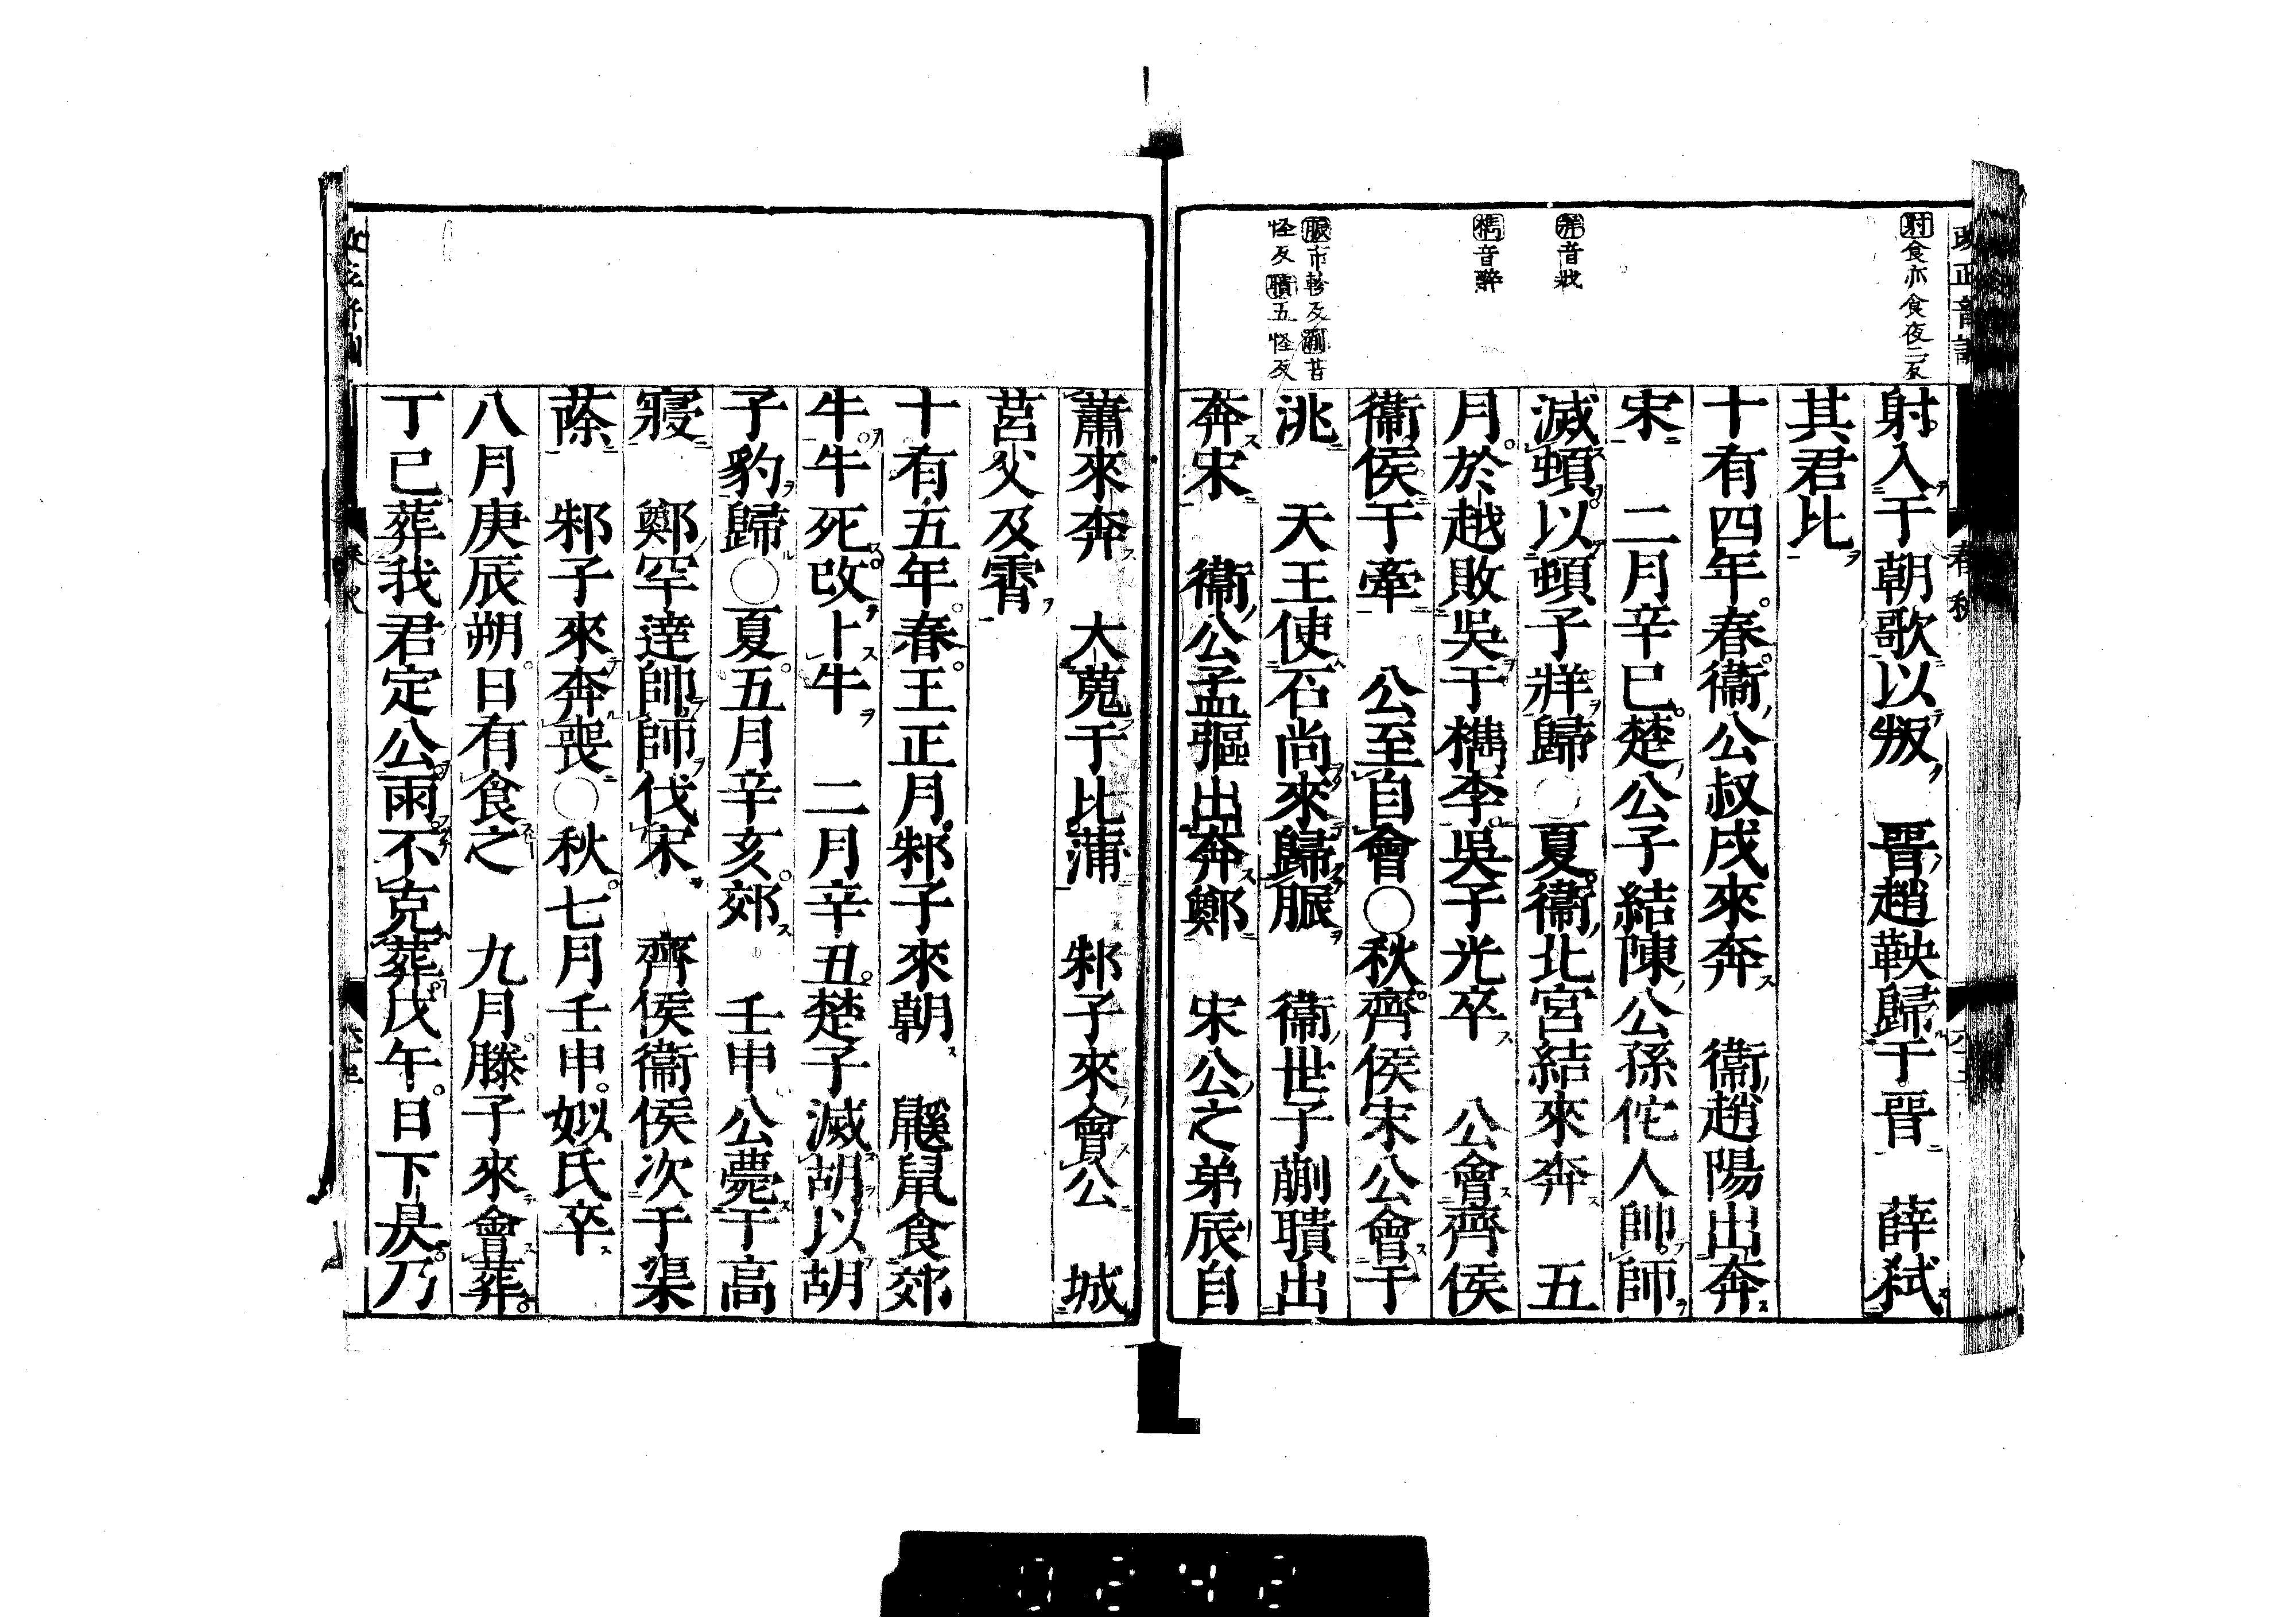 改正音訓
射食亦食夜二反
牂音牂
檇音醉
脤市軫反蒯苦
怪反聵五怪反
射入于朝歌以叛　晉趙鞅歸于晉　薛弑
其君比
十有四年春衞公叔戌來奔　衞趙陽出奔
宋　二月辛巳楚公子結陳公孫佗人帥師
滅頓以頓子牂歸〇夏衞北宮結來奔　五
月於越敗吳于檇李吳子光卒　公會齊侯
衞侯于牽　公至自會〇秋齊侯宋公會于
洮　天王使石尚來歸脤　衞世子蒯聵出
奔宋　衞公孟彄出奔鄭　宋公之弟辰自
蕭來奔　大蒐于比蒲　邾子來會公　城
莒父及霄
十有五年春王正月邾子來朝　鼷鼠食郊
牛牛死改卜牛　二月辛丑楚子滅胡以胡
子豹歸〇夏五月辛亥郊　壬申公薨于高
寢　鄭罕達帥師伐宋　齊侯衞侯次于渠
蒢　邾子來奔喪〇秋七月壬申姒氏卒
八月庚辰朔日有食之　九月滕子來會葬
丁巳葬我君定公雨不克葬戊午日下昃乃
春秋
0242